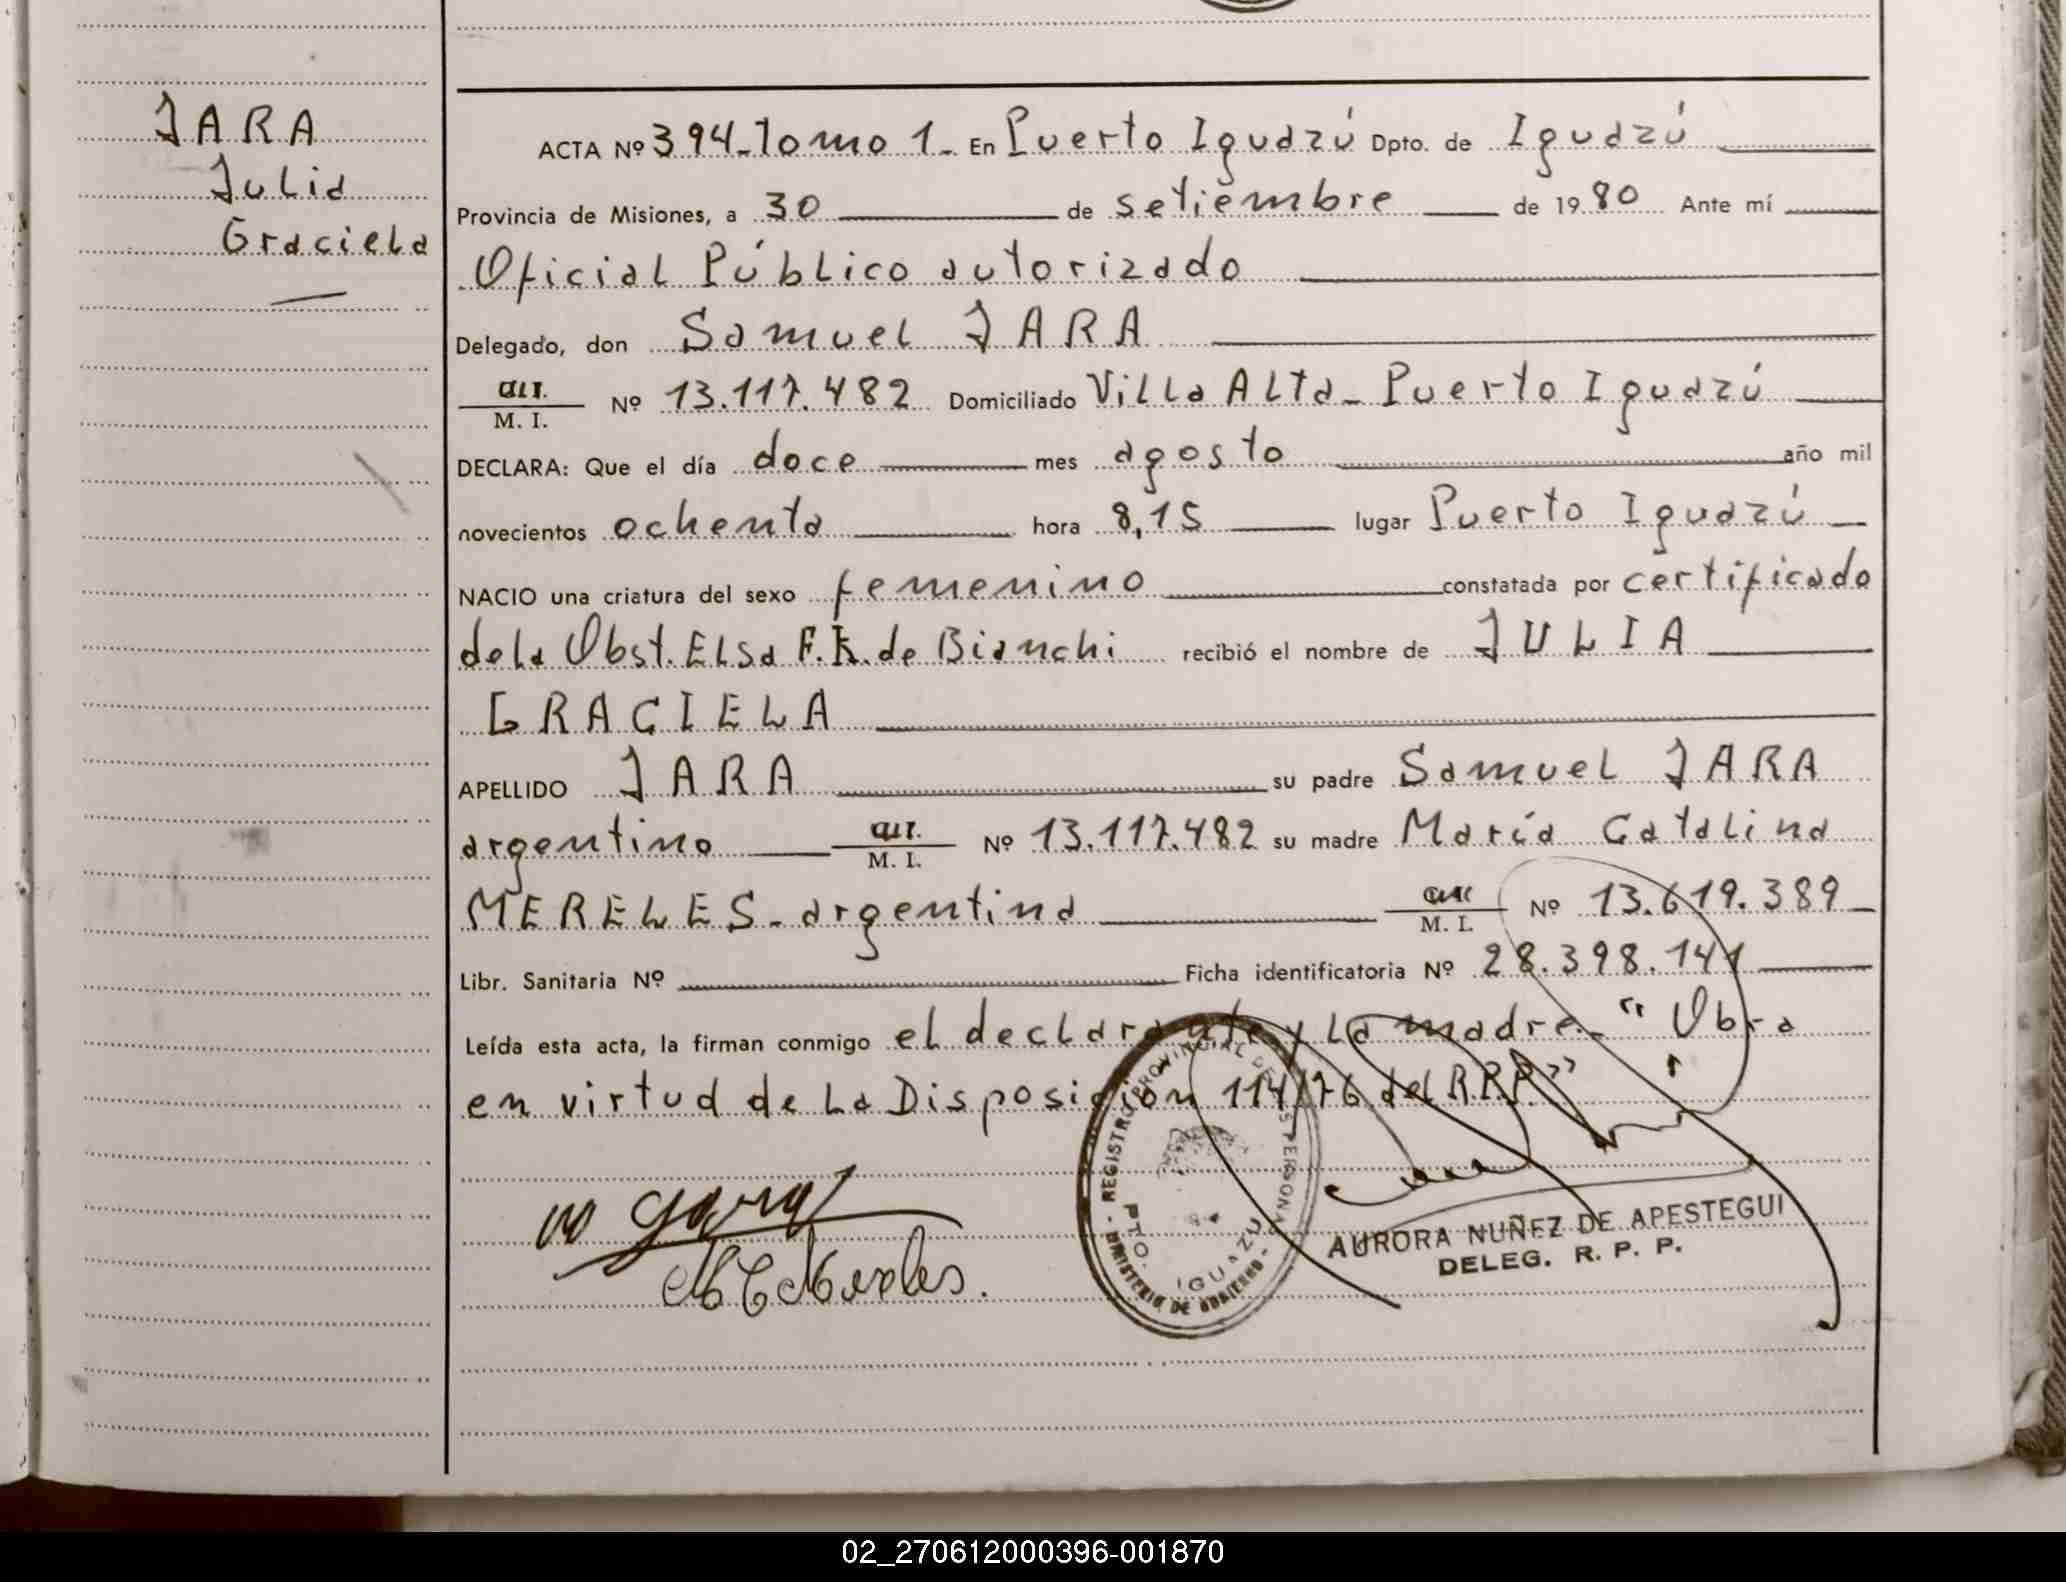 JARA
Julia
Graciela
ACTA Nº 394-Tomo 1- En Puerto Iguazú Dpto. de Iguazú
Provincia de Misiones, a 30 de setiembre de 1980 Ante mí
Oficial Público autorizado
Delegado, don Samuel JARA
M. I. Nº 13.117.482 Domiciliado Villa Alta- Puerto Iguazú
DECLARA: Que el día doce mes agosto año mil
novecientos ochenta hora 8,15 lugar Puerto Iguazú
NACIO una criatura del sexo femenino constatada por certificado
de la Obst. Elsa F. K. de Bianchi recibió el nombre de JULIA
GRACIELA
APELLIDO JARA su padre Samuel JARA
argentino M. I. Nº 13.117.482 su madre María Catalina
MERELES- argentina M. I. Nº 13.619.389
Libr. Sanitaria Nº Ficha identificatoria Nº 28.398.141
Leída esta acta, la firman conmigo el declarante y la madre.- "Obra
en virtud de la Disposición 114/76 del R.P.P."
REGISTRO PROVINCIAL DE LAS PERSONAS
PTO. IGUAZU
MINISTERIO DE GOBIERNO
AURORA NUÑEZ DE APESTEGUI
DELEG. R. P. P.
02_270612000396-001870